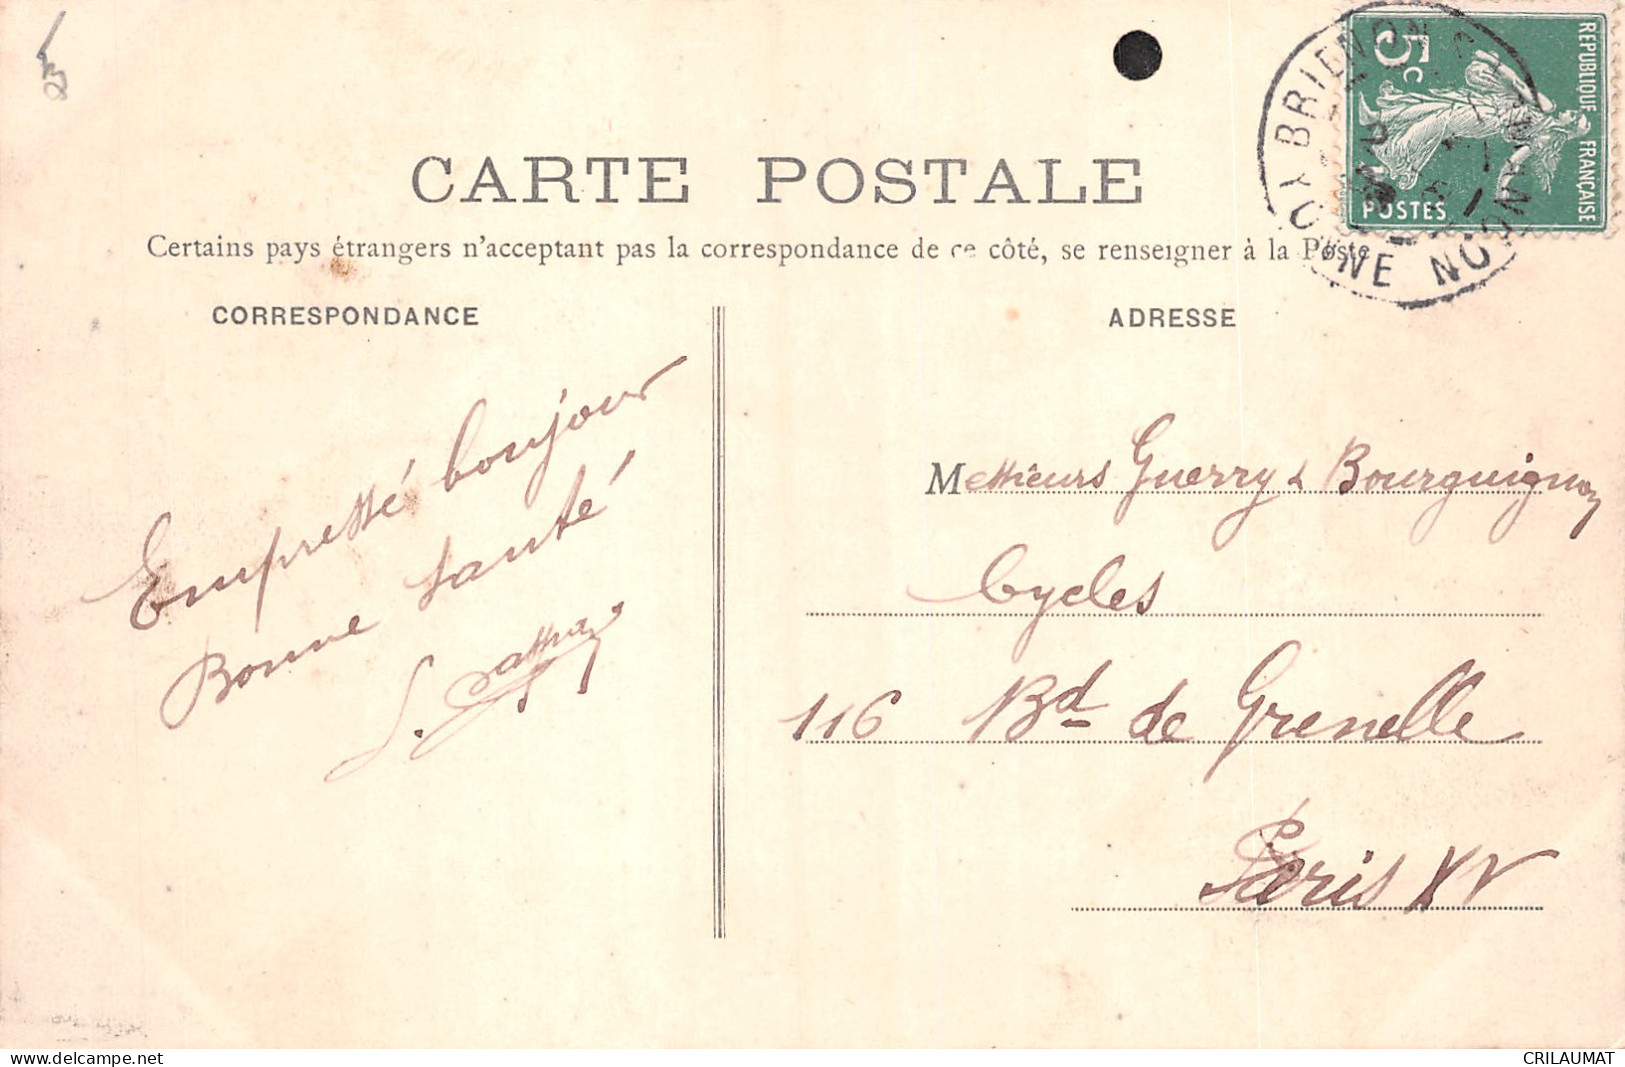 CARTE POSTALE
Certains pays étrangers n'acceptant pas la correspondance de ce côté, se renseigner à la Poste
CORRESPONDANCE
ADRESSE
Empressé bonjour
Bonne santé
Messieurs Guerry & Bourguignon
Cycles
116 Bd de Grenelle
Paris XV
REPUBLIQUE FRANÇAISE
5c
POSTES
BRIENON
YONNE
www.delcampe.net
CRILAUMAT